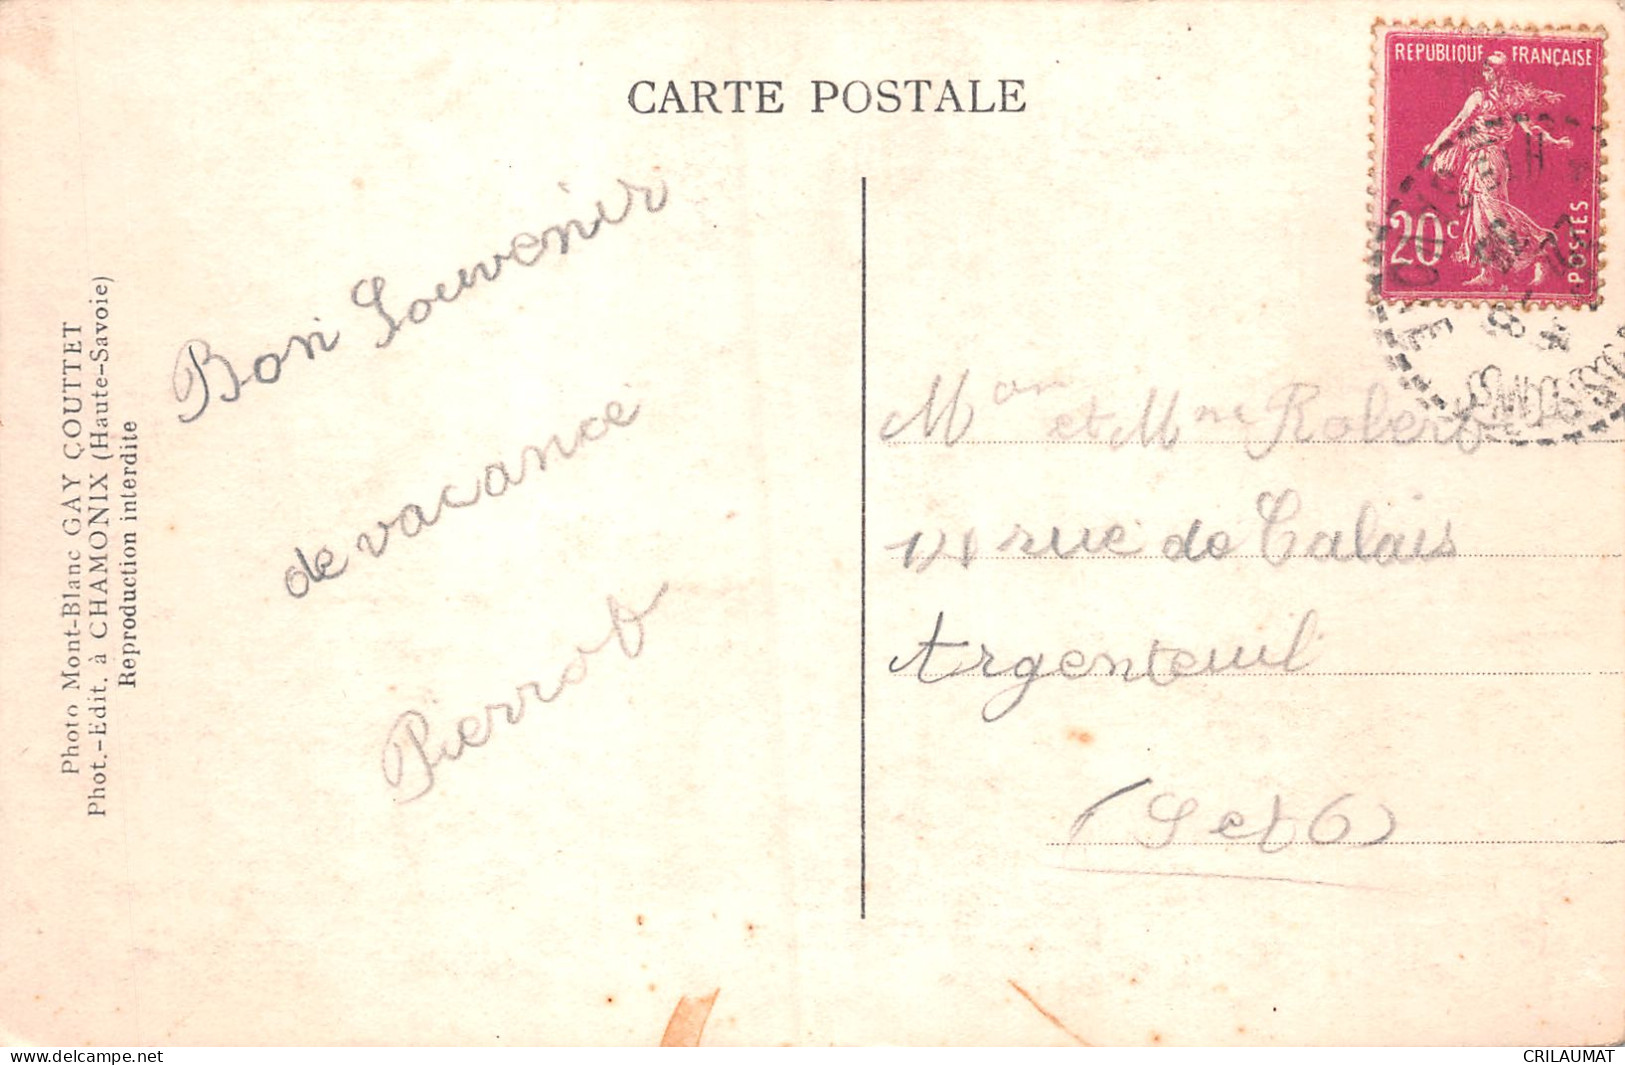 CARTE POSTALE
REPUBLIQUE FRANÇAISE
20c
POSTES
Photo Mont-Blanc GAY COUTTET
Phot.-Edit. à CHAMONIX (Haute-Savoie)
Reproduction interdite
Bon Souvenir
de vacance
Pierrot
Mon et Mme Robert
rue de Calais
Argenteuil
(S et O)
CRILAUMAT